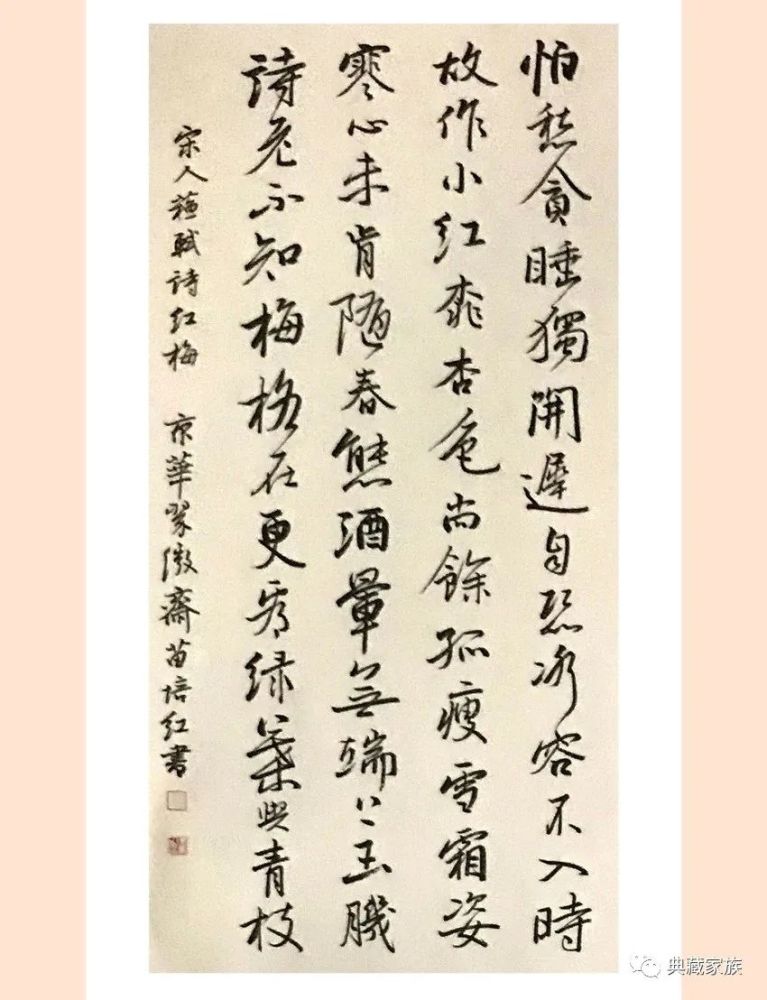 怕愁貪睡獨開遲自恐冰容不入時
故作小红桃杏色尚餘孤瘦雪霜姿
寒心未肯隨春態酒暈無端上玉肌
詩老不知梅格在更看绿葉與青枝
宋人蘇軾詩红梅 京華翠微齋苗培红書
典藏家族